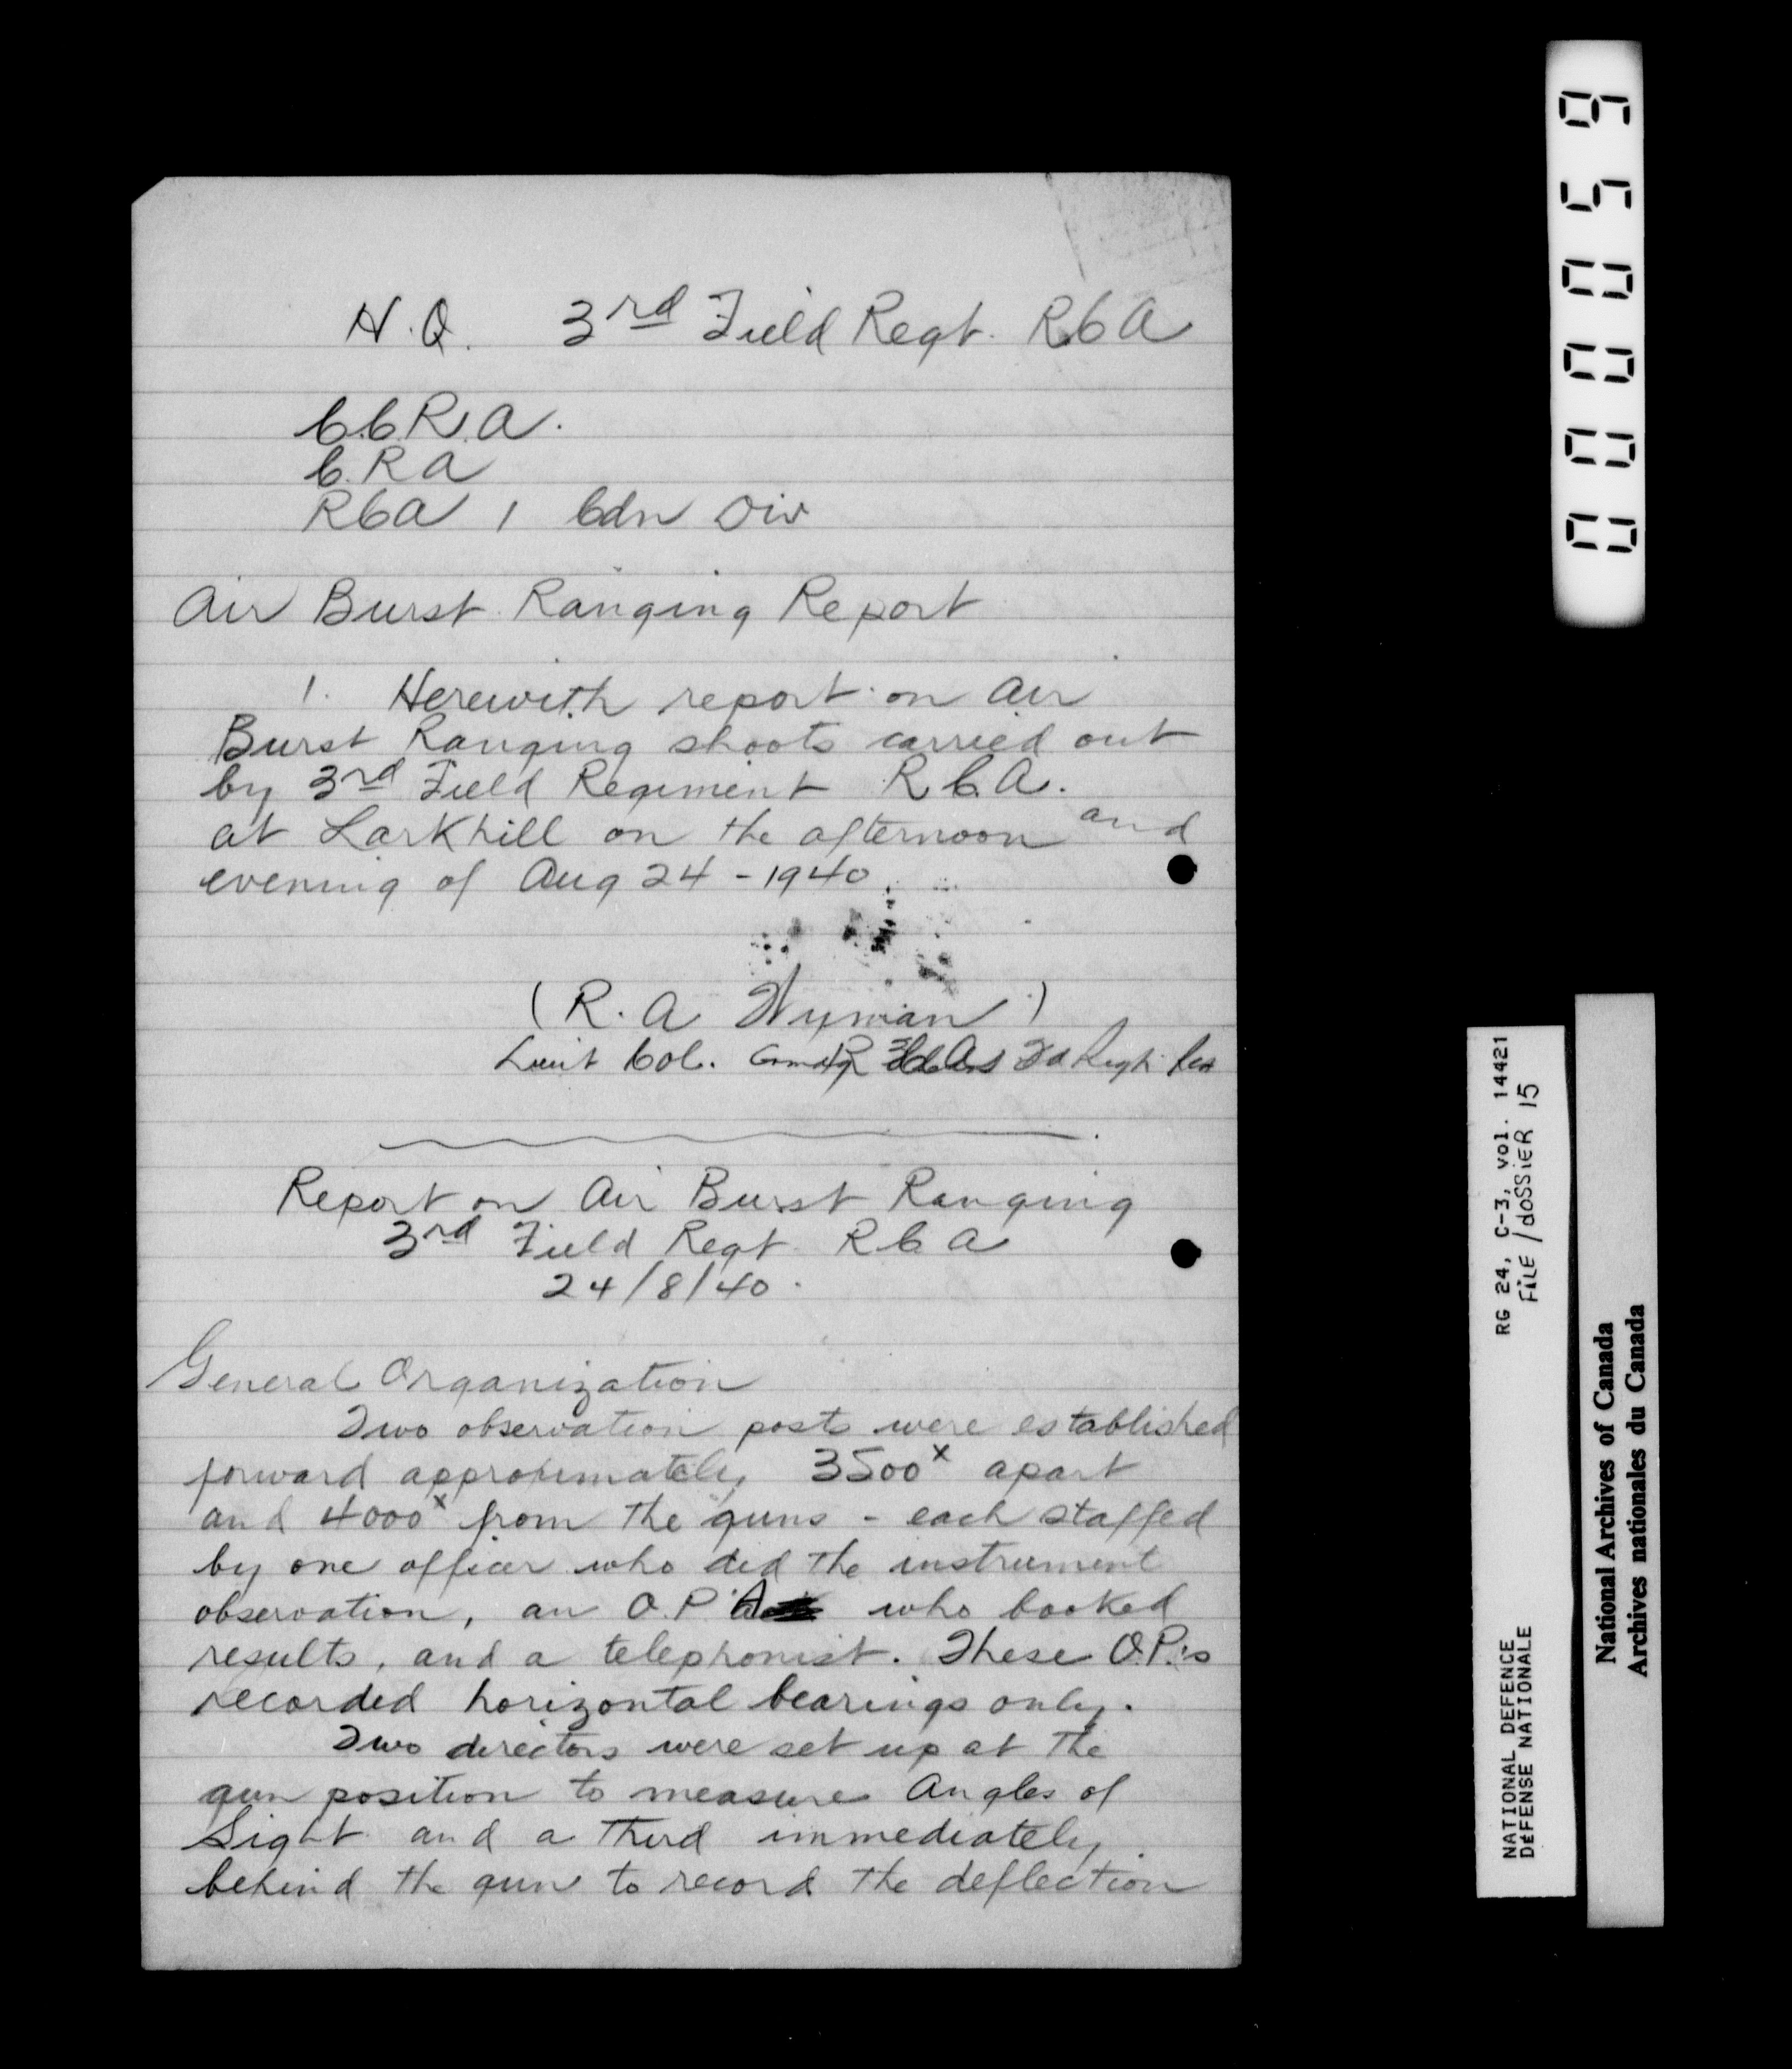 H.Q. 3rd Field Regt. RCA
C.C.R.A.
C.R.A
RCA 1 Cdn Div
Air Burst Ranging Report
1. Herewith report on Air
Burst Ranging shoots carried out
by 3rd Field Regiment R.C.A.
at Larkhill on the afternoon and
evening of Aug 24 - 1940.
(R. A Wyman)
Lieut Col. Comdg 3d Regt RCA
Report on Air Burst Ranging
3rd Field Regt RCA
24/8/40.
General Organization
Two observation posts were established
forward approximately 3500x apart
and 4000x from the guns - each staffed
by one officer who did the instrument
observation, an O.P.A who booked
results, and a telephonist. These O.P.'s
recorded horizontal bearings only.
Two directors were set up at the
gun position to measure Angles of
Sight and a third immediately
behind the gun to record the deflection
000059
RG 24, C-3, vol. 14421
FILE/dOSSiER 15
NATIONAL DEFENCE
DÉFENSE NATIONALE
National Archives of Canada
Archives nationales du Canada